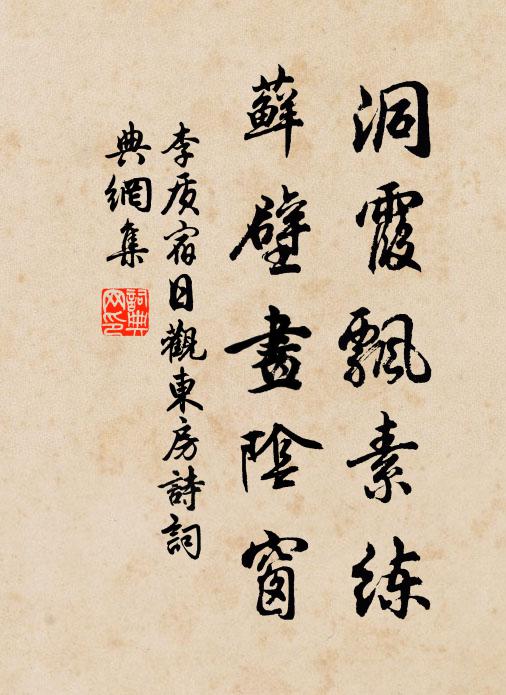 洞霞飄素练
蘚壁畫陰窗
李质宿日觀東房詩詞
典網集
詞典網印